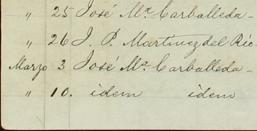 " 25 José Mª Carballeda -
" 26 J. P. Martinez del Rio
Marzo 3 José Mª Carballeda -
" 10. idem idem